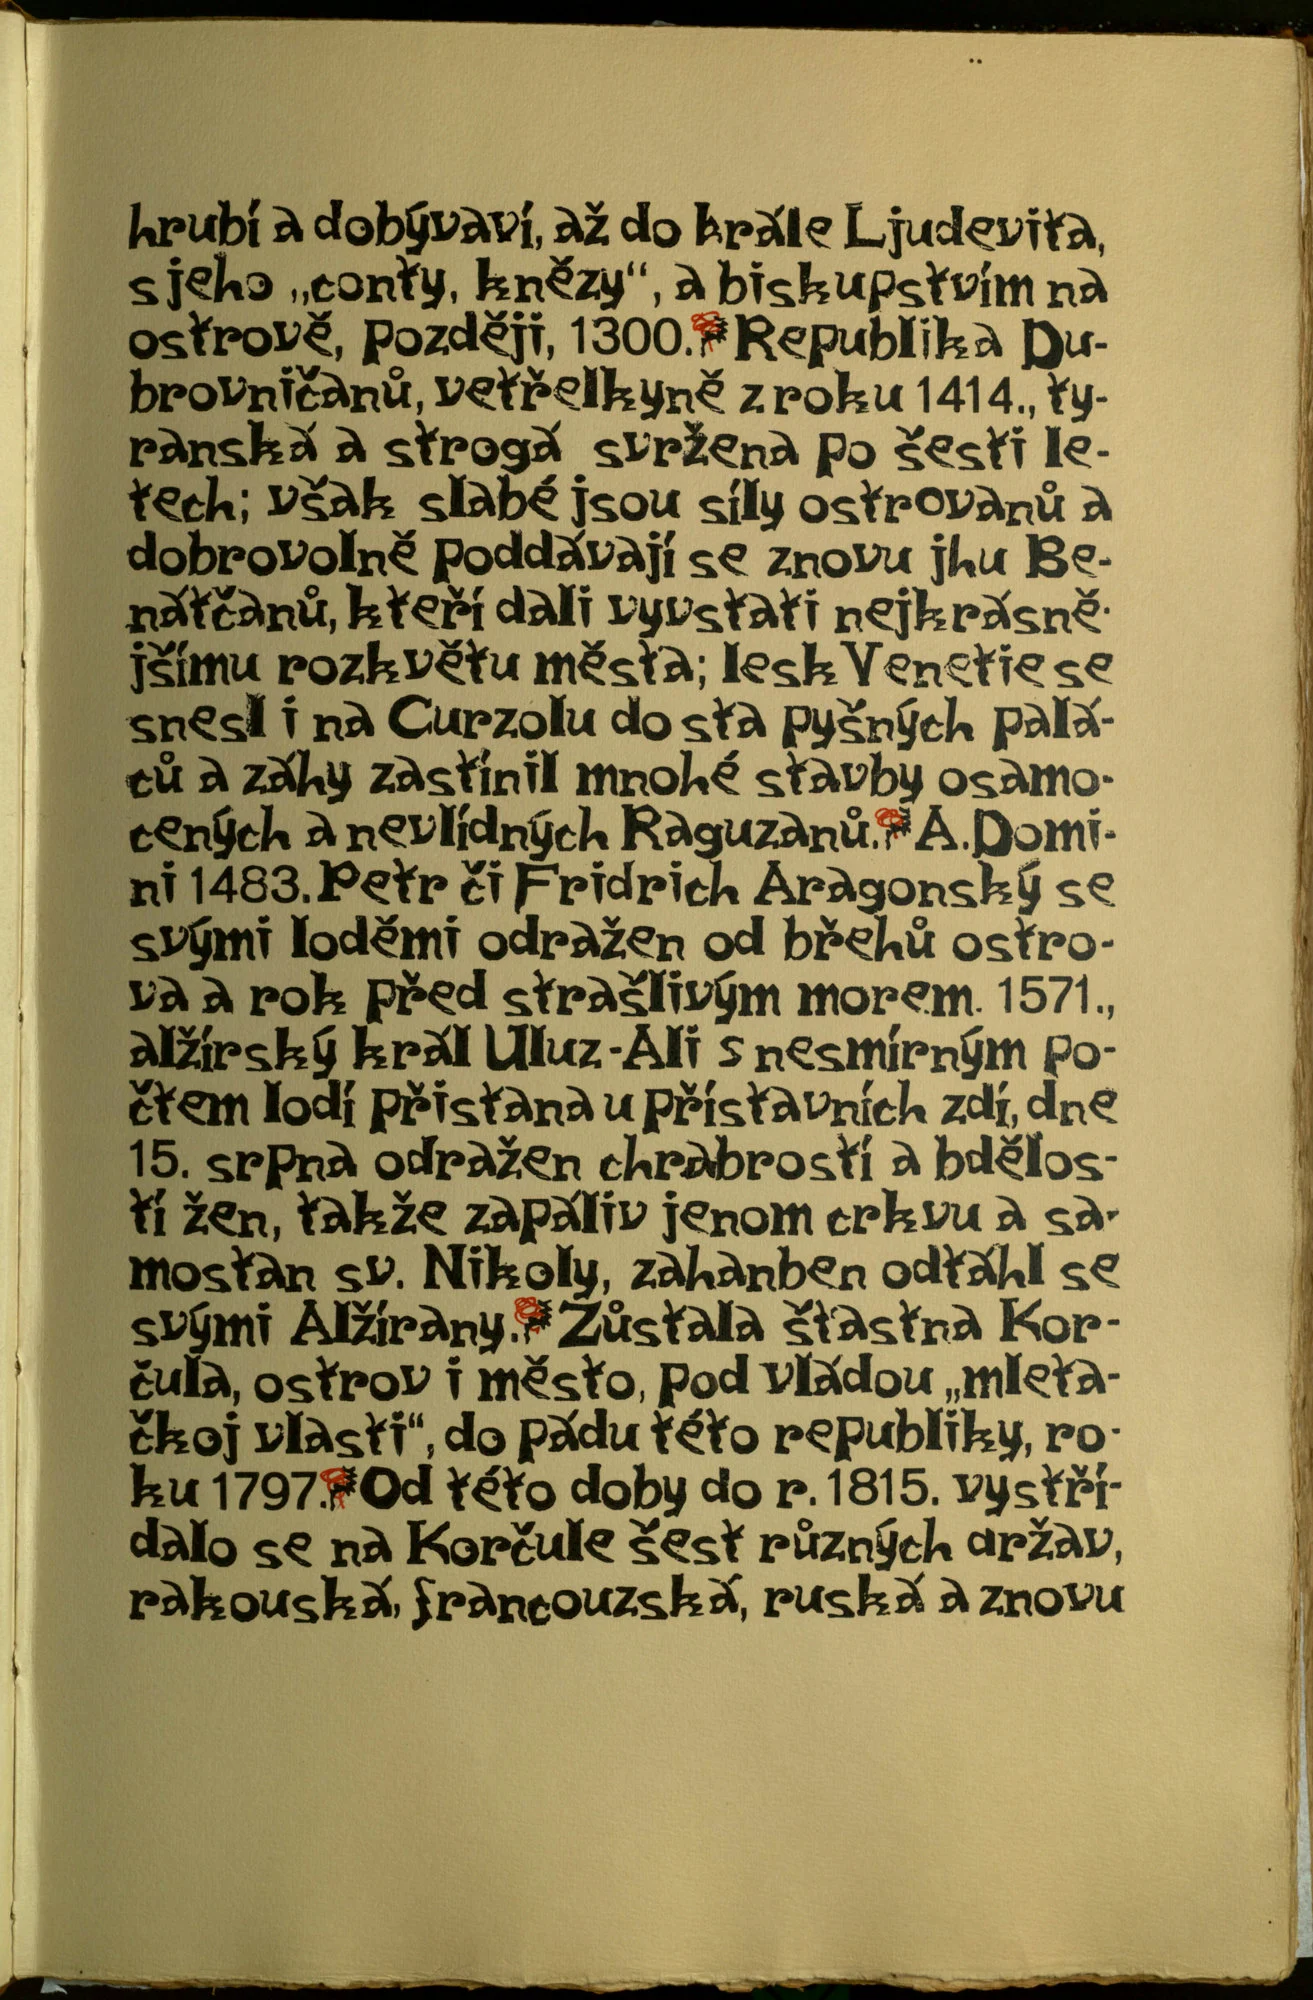 hrubí a dobývaví, až do krále Ljudevita,
s jeho „conty, knězy“, a biskupstvím na
ostrově, později, 1300. Republika Du-
brovničanů, vetřelkyně z roku 1414., ty-
ranská a strogá svržena po šesti le-
tech; však slabé jsou síly ostrovanů a
dobrovolně poddávají se znovu jhu Be-
nátčanů, kteří dali vyvstati nejkrásně-
jšímu rozkvětu města; lesk Venetie se
snesl i na Curzolu do sta pyšných palá-
ců a záhy zastínil mnohé stavby osamo-
cených a nevlídných Raguzanů. A. Domi-
ni 1483. Petr či Fridrich Aragonský se
svými loděmi odražen od břehů ostro-
va a rok před strašlivým morem. 1571.,
alžírský král Uluz-Ali s nesmírným po-
čtem lodí přistana u přístavních zdí, dne
15. srpna odražen chrabrostí a bdělos-
tí žen, takže zapáliv jenom crkvu a sa-
mostan sv. Nikoly, zahanben odtáhl se
svými Alžírany. Zůstala šťastna Kor-
čula, ostrov i město, pod vládou „mleta-
čkoj vlasti“, do pádu této republiky, ro-
ku 1797. Od této doby do r. 1815. vystří-
dalo se na Korčule šest různých aržav,
rakouská, francouzská, ruská a znovu